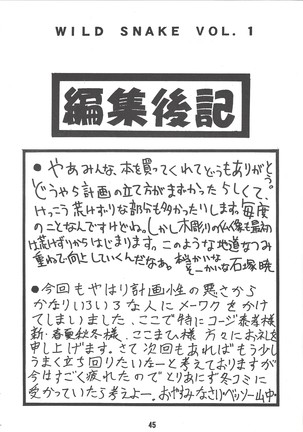 WILD SNAKE VOL. 1
編集後記
●やあみんな、本を買ってくれてどうもありがとう。
どうやら計画の立て方がまずかったらしくて、
けっこう荒けずりな部分も多かったりします。毎度
のことなんですけどね。しかし木彫りの仏像も最初
は荒けずりからはじまります。このような地道なつみ
重ねで向上していくんだなあ。
そーかいな石塚暁
●今回もやはり計画性の悪さから
かなりいろいろな人にメーワクをかけ
てしまいました、ここで特にコージ泰孝様
新・春夏秋冬様、ここまひ様 方々にお礼を
申し上げます。さて次回もあればもう少し
うまく立ち回りたいなーと考えておりますが
今はすごく疲れたのでとりあえず冬コミに
受かっていたら考えよー。おやすみなさい
45